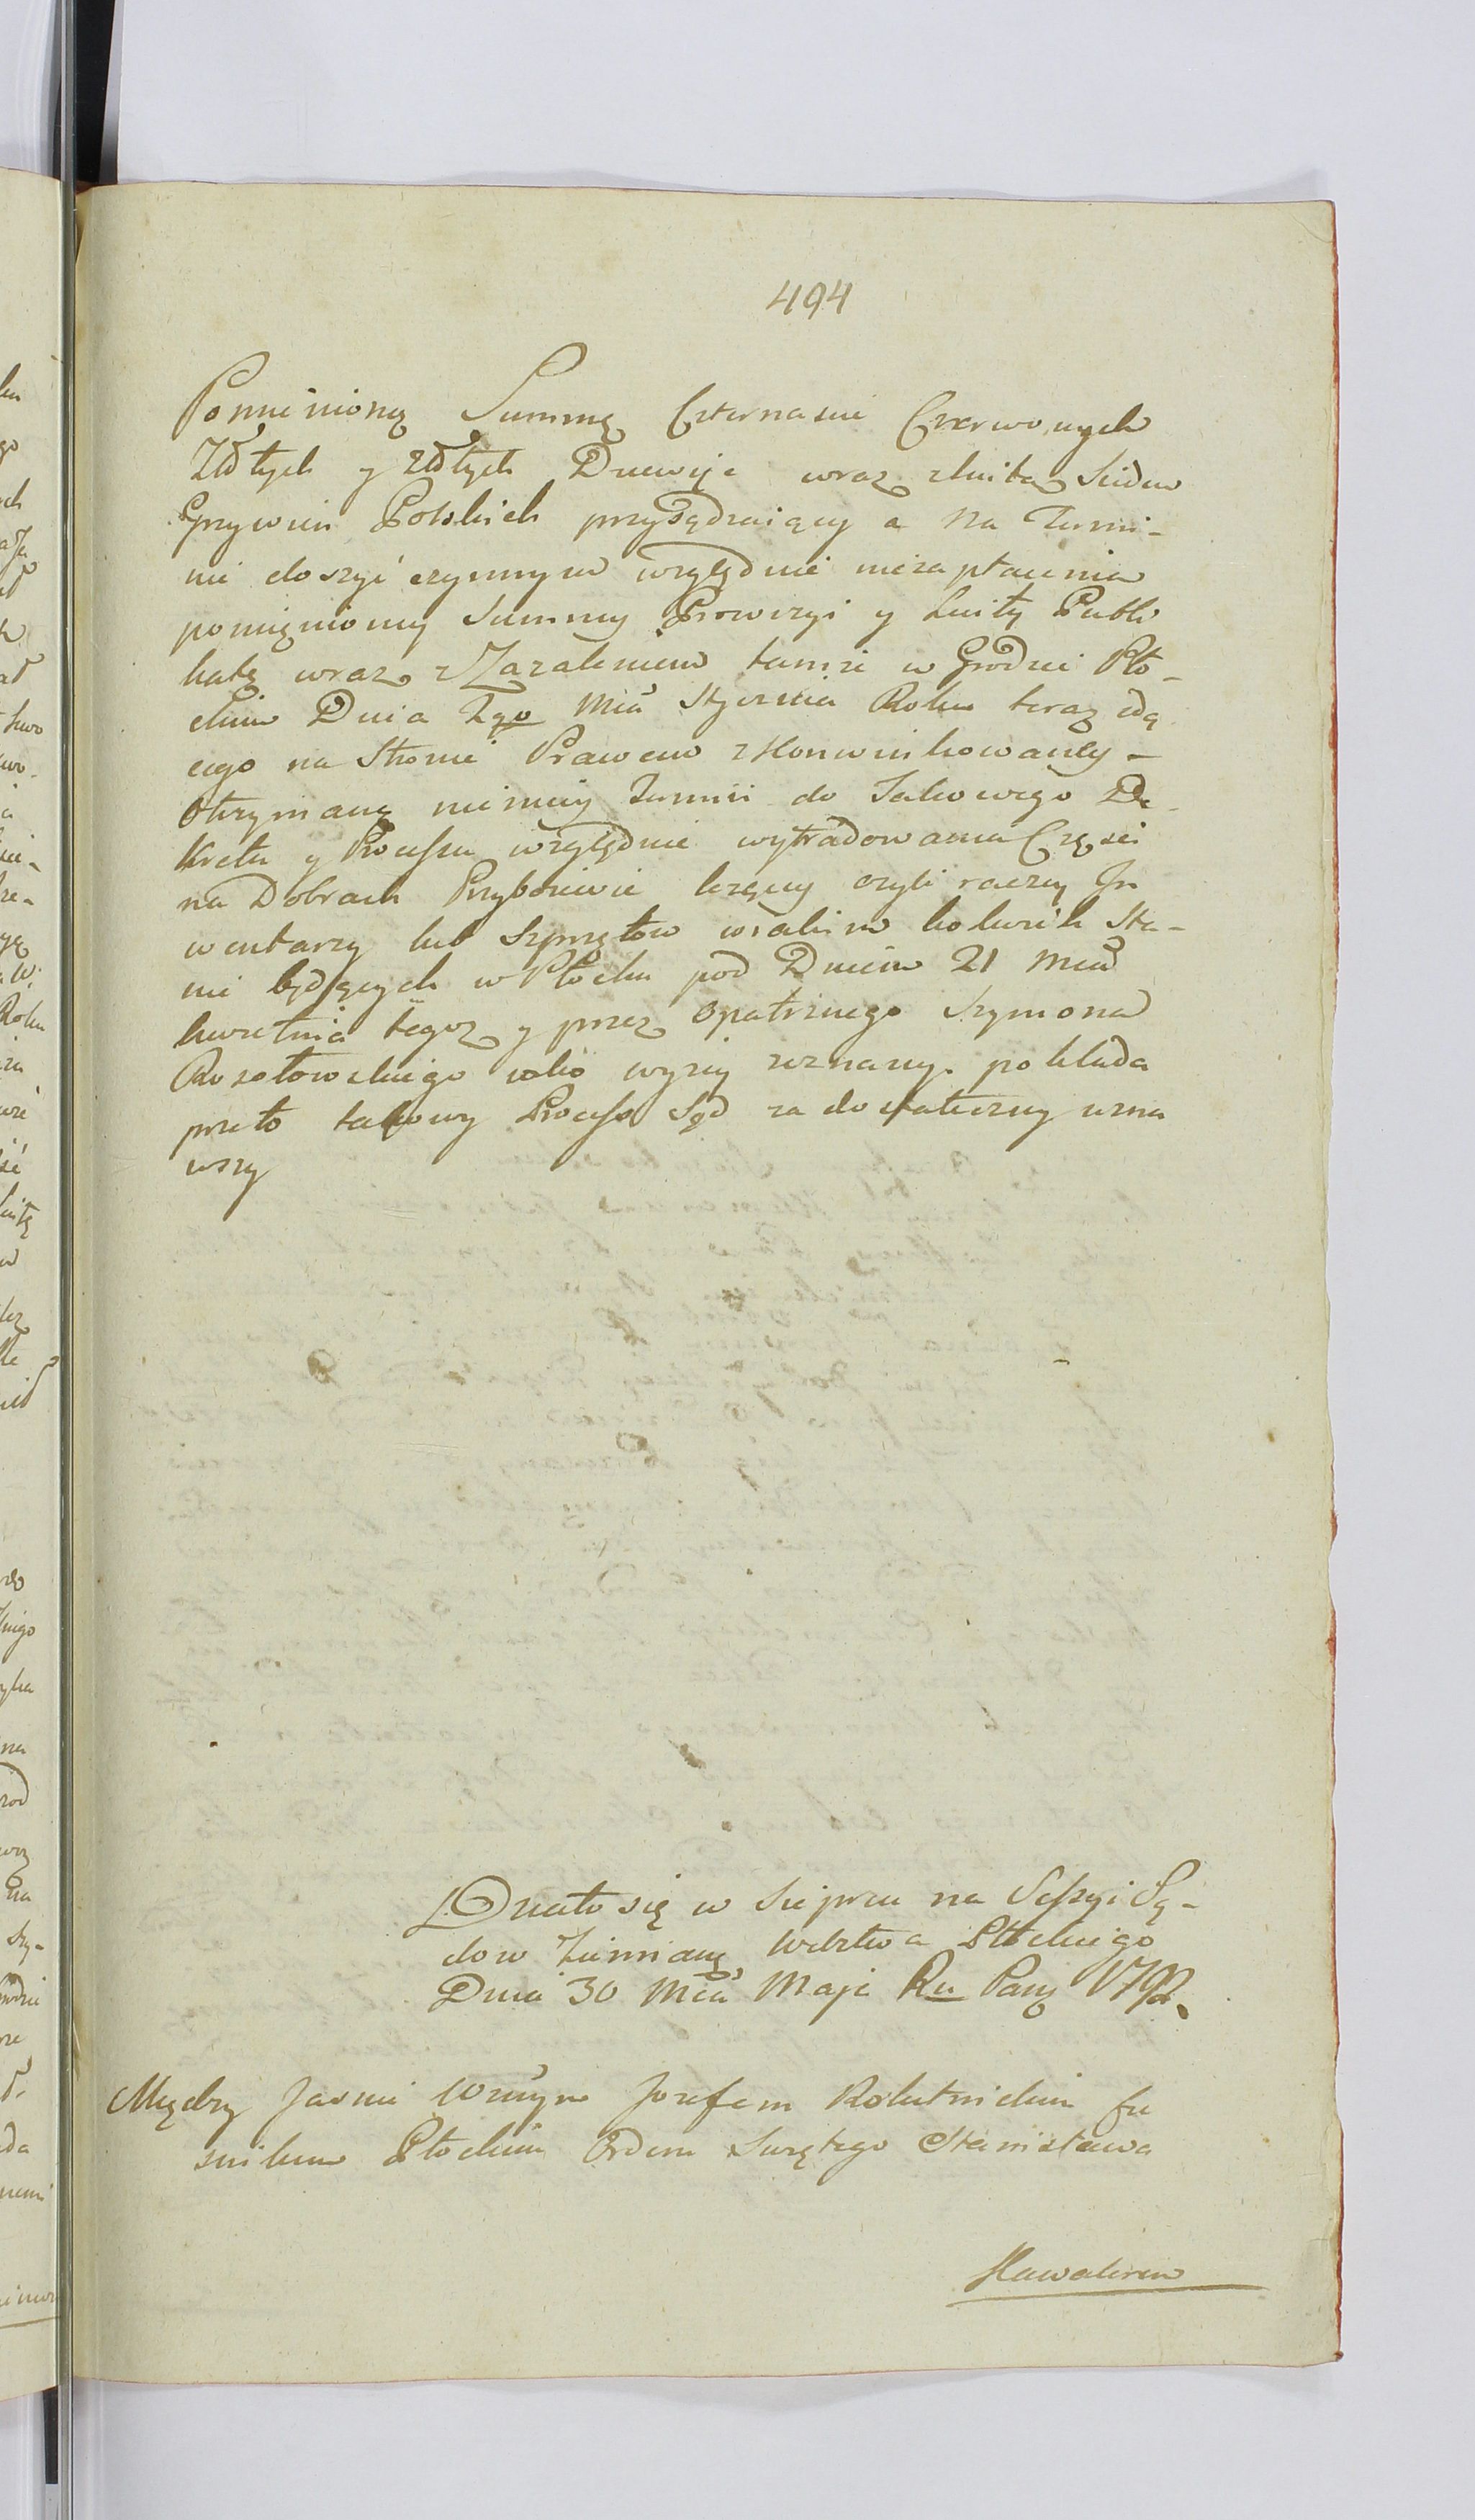 494
Pomienioną Summę Czternascie Czerwonych
Złłtych y złłtych Dwewije wraz zluitą Siedm
Grzywien Polskich przysądzaiący a na Termi-
nie doszyć czynnym względnie niezapłacenia
pomienioney Summy Prowizyi y Luity Publi
katę wraz z Zazaleniem tamze w Grodzie Pło-
ckim Dnia 2go Mca Stycznia Roku teraz idą
cego na Stronie Prawem zkonwinkowaney -
Otrzymaną niemniey Ziemski do Takowego De-
kretu y Processu względnie wytradowania Częsci
na Dobrach Przybosiewie lezącey czyli raczey In
wentarzy lub Szprzętow wiakim kolwiek Sta-
nie będących w Płocku pod Dniem 21 Mca
kwietnia tegoz y przez Opatrznego Szymona
Rosołowskiego iako wyzey zeznany. pokłada
przeto takowy Process Sąd za dostateczny uzna
wszy
Działo się w Sieprcu na Sessyi Są-
dow Ziemiań, Wdztwa Płłckiego
Dnia 30 Mca Maja Ru Pańs 1792.
Między Jasnie Wnym Jozefem Rokitnickim Cze
snikiem Płockim Orderu Swiętego Stanisława
Kawalerem